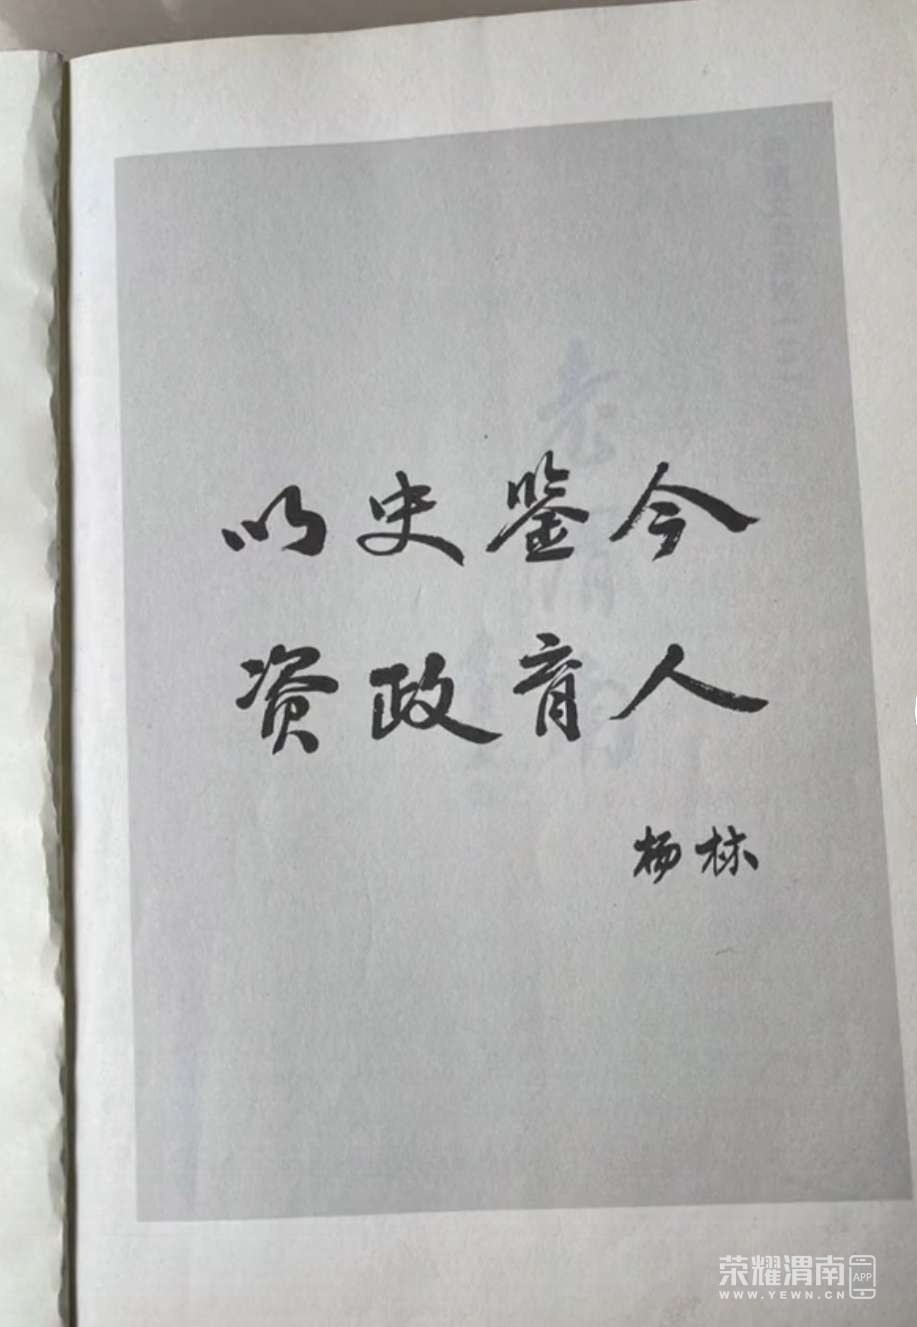 以史鉴今
资政育人
杨林
荣耀渭南
APP
WWW.YEWN.CN